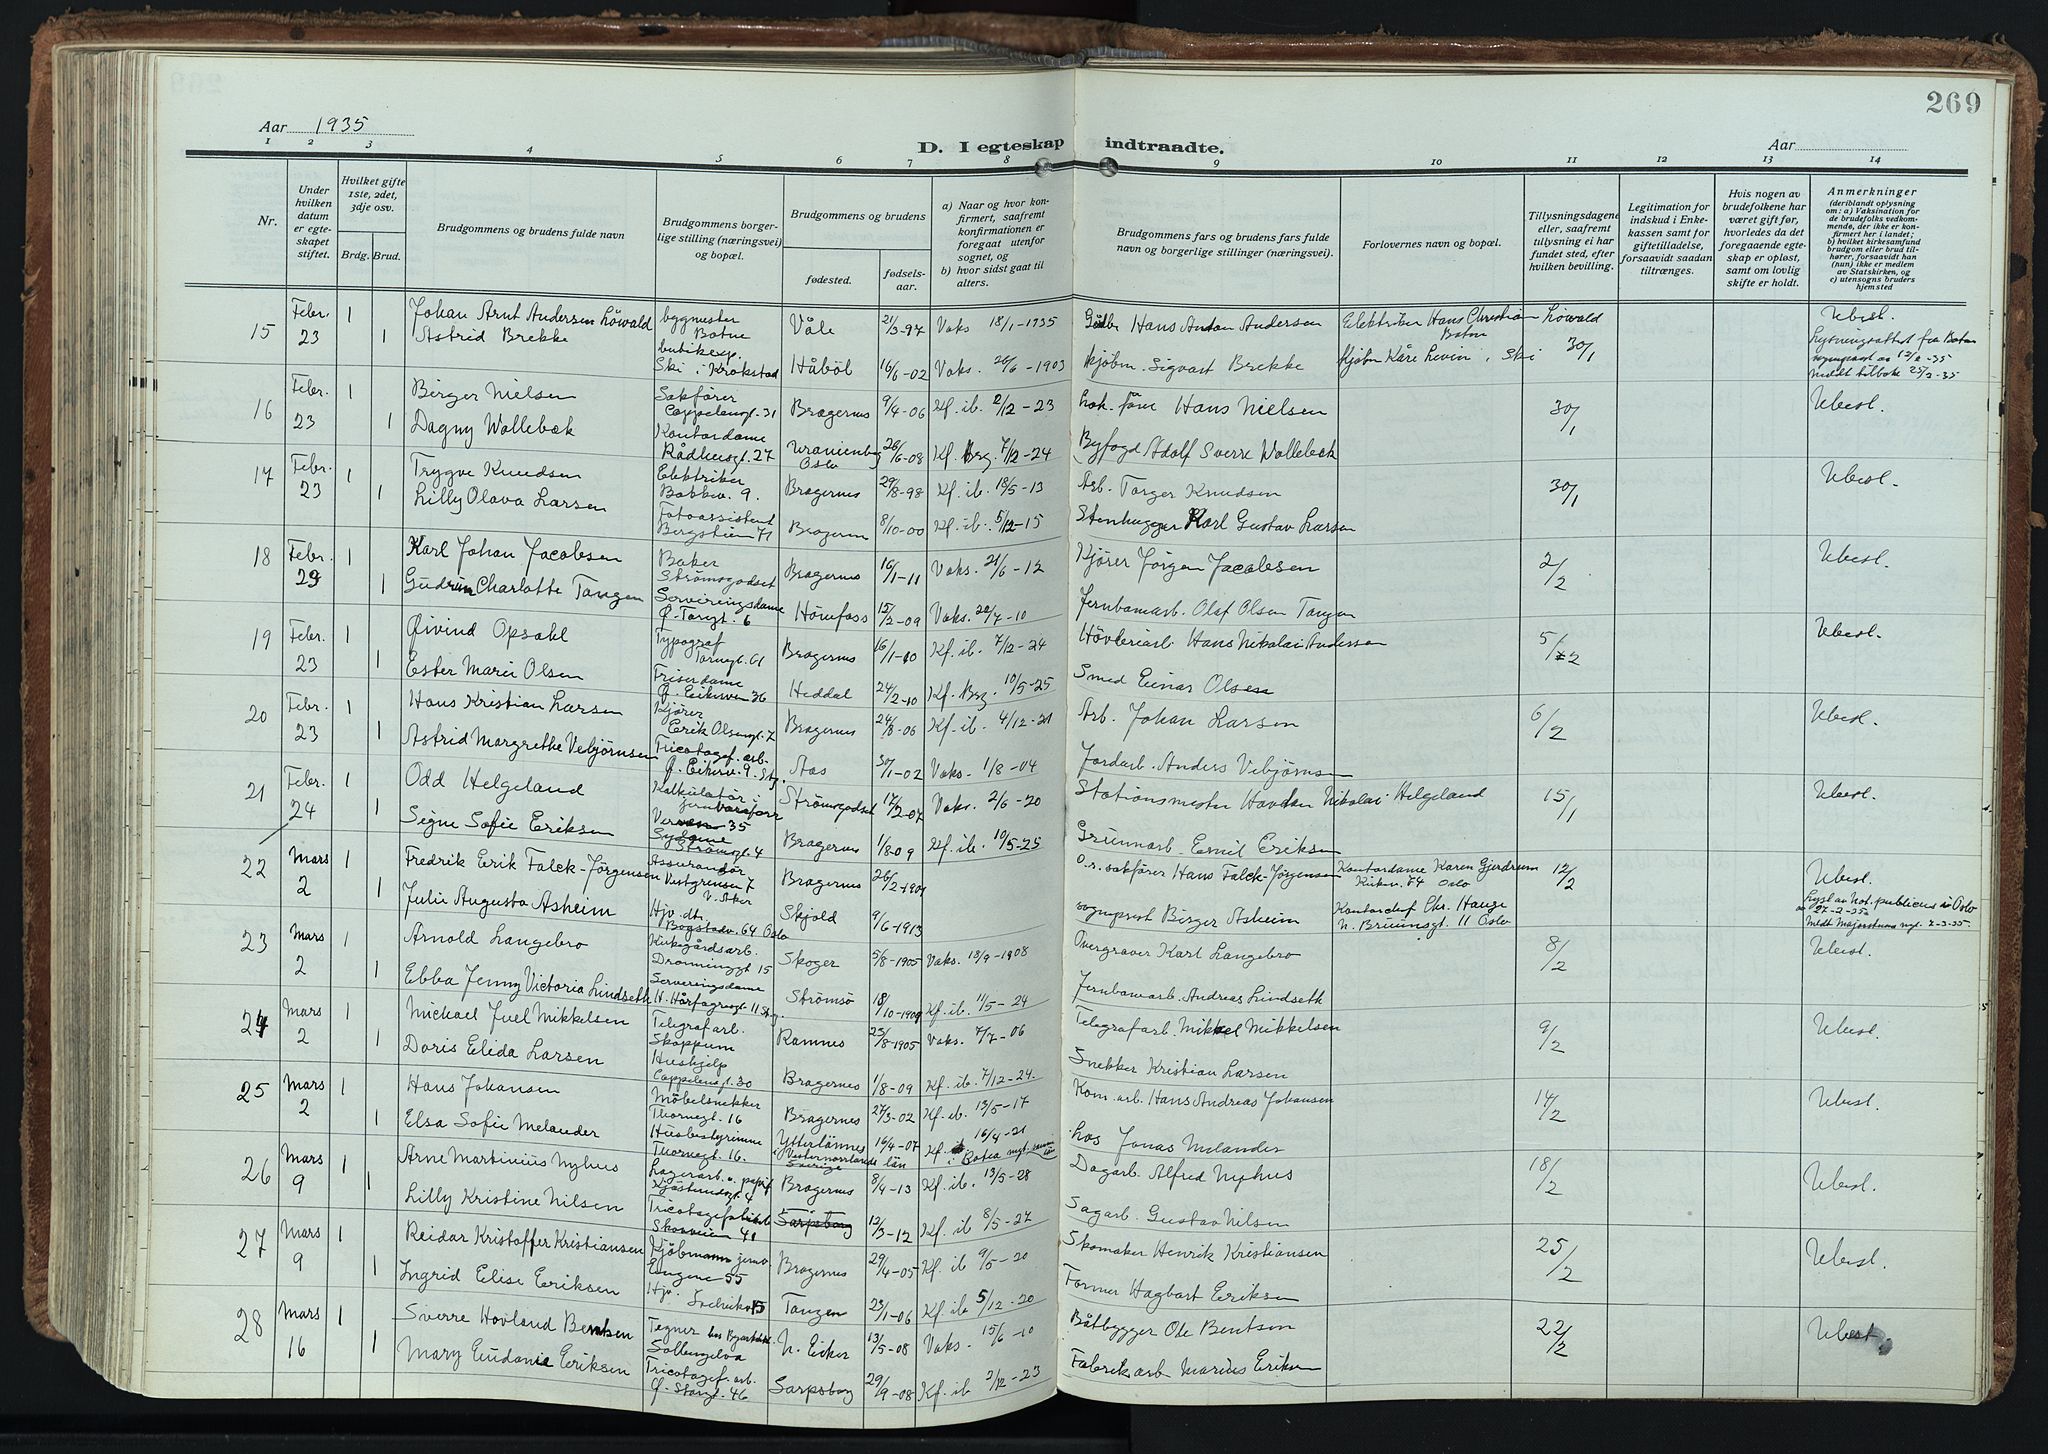 269
Aar 1935
D. I egteskap indtraadte.
Aar
1 2 3 4 5 6 7 8 9 10 11 12 13 14
Nr.
Under hvilken datum er egteskapet stiftet.
Hvilket gifte 1ste, 2det, 3dje osv.
Brdg. Brud.
Brudgommens og brudens fulde navn
Brudgommens borgerlige stilling (næringsvei) og bopæl.
Brudgommens og brudens
fødested.
fødselsaar.
a) Naar og hvor konfirmert, saafremt konfirmationen er foregaat utenfor sognet, og
b) hvor sidst gaat til alters.
Brudgommens fars og brudens fars fulde navn og borgerlige stillinger (næringsvei).
Forlovernes navn og bopæl.
Tillysningsdagene eller, saafremt tillysning ei har fundet sted, efter hvilken bevilling.
Legitimation for indskud i Enkekassen samt for giftetilladelse, forsaavidt saadan tiltrænges.
Hvis nogen av brudefolkene har været gift før, hvorledes da det foregaaende egteskap er opløst, samt om lovlig skifte er holdt.
Anmerkninger
(deriblandt oplysning om: a) Vaksination for de brudefolks vedkommende, der ikke er konfirmert her i landet; b) hvilket kirkesamfund brudgom eller brud tilhører, forsaavidt han (hun) ikke er medlem av Statskirken, og c) utensogns bruders hjemsted
15 Febr. 23 1 Johan Arnt Andersen Löwald bygmester Botne Våle 21/3-97 Vaks 18/1-1935 Hans Anton Andersen Elektriker Hans Christian Löwald Botne 30/1 Ubesl.
1 Astrid Brekke butikexp. Ski i Kråkstad Håböl 16/6-02 Vaks. 26/6-1903 kjøbm. Sigvart Brekke Kjøbm Kåre Levin, Ski Lysningsattest fra Botne sogneprest av 12/2-35 meldt tilbake 25/2-35
16 Febr. 23 1 Birger Nielsen Sakfører Cappelensgt. 31 Bragernes 9/4-06 Kf. ib. 2/12-23 Hans Nielsen 30/1 Ubesl.
1 Dagny Wollebæk Kontordame Rådhusgt. 27 Uranienborg Oslo 26/6-08 Kf. Brg. 7/12-24 Byfogd Adolf Sverre Wollebæk
17 Febr. 23 1 Trygve Knudsen Elektriker Bakkev. 9. Bragernes 29/8-98 Kf. ib. 18/5-13 Arb. Torger Knudsen 30/1 Ubesl.
1 Lilly Olava Larsen Fotoassistent Bergstien 71 Bragernes 8/10-00 Kf. ib. 5/12-15 Stenhugger Karl Gustav Larsen
18 Febr. 23 1 Karl Johan Jacobsen Baker Strømsgodset Bragernes 16/1-11 Vaks. 21/6-12 Kjører Jørgen Jacobsen 2/2 Ubesl.
1 Gudrun Charlotte Tangen Serveringsdame Ø. Torvgt. 6 Hönefoss 15/2-09 Vaks. 20/7-10 Jernbanearb. Olaf Olsen Tangen
19 Febr. 23 1 Øivind Opsahl Typograf Tornegt. 61 Bragernes 16/1-10 Kf. ib. 7/12-24 Hövleriarb. Hans Nikolai Andersen 5/2 Ubesl.
1 Ester Marie Olsen Friserdame Ø. Eikervei 36 Heddal 24/2-10 Kf. Brg. 10/5-25 Smed Einar Olsen
20 Febr. 23 1 Hans Kristian Larsen Kjører Erik Olsensgt. 7 Bragernes 24/8-06 Kf. ib. 4/12-21 Arb. Johan Larsen 6/2 Ubesl.
1 Astrid Margrethe Vebjörnsen Tricotagef. arb. Ø. Eikerv. 9. Stg. Aas 30/1-02 Vaks. 1/8-04 Jordarb. Anders Vebjörnsen
21 Febr. 24 1 Odd Helgeland Kalkulatør i jernvareforr. 35 Strömsgodset 17/2-07 Vaks. 2/6-20 Stationsmester Nikolai Helgeland 15/1 Ubesl.
1 Signe Sofie Eriksen Sydame Strømsgt. 4 Bragernes 1/8-09 Kf. ib. 10/5-25 Grünnarb. Emil Eriksen
22 Mars 2 1 Fredrik Erik Falck-Jörgensen Assurandör Vestgrensen 7 V. Aker Bragernes 26/2-1901 O.r. sakfører Hans Falck-Jörgensen Kontordame Karen Gjerdrum Kirkev. 74 Oslo 12/2 Ubesl.
1 Julie Augusta Asheim Hjv. dtr. Bogstadv. 64 Oslo Skjold 9/6-1913 sogneprest Birger Asheim Kontorchef Chr. Hauge N. Bruunsgt. 11 Oslo Lyst av Not. publicus i Oslo 27-2-35 Meldt Majorstuens mgt. 2-3-35.
23 Mars 2 1 Arnold Langebro Kirkegårdsarb. Dronninggt 15 Skoger 5/8-1905 Vaks. 13/9-1908 Overgraver Karl Langebro 8/2 Ubesl.
1 Ebba Jenny Victoria Lindseth Serveringsdame H. Hårfagresgt. 11 Stg. Strömsö 18/10-1909 Kf. ib. 11/5-24 Jernbanearb. Andreas Lindseth
24 Mars 2 1 Michael Juel Mikkelsen Telegrafarb. Skoppum Ramnes 25/8-1905 Vaks. 7/7-06 Telegrafarb. Mikkel Mikkelsen 9/2 Ubesl.
1 Doris Elida Larsen Hushjelp Cappelensgt. 30 Bragernes 1/8-09 Kf. ib. 7/12-24. Snekker Kristian Larsen
25 Mars 2 1 Hans Johansen Möbelsnekker Thornegt. 16 Bragernes 27/3-02 Kf. ib. 13/5-17 Kom. arb. Hans Andreas Johansen 14/2 Ubesl.
1 Elsa Sofie Melander Husbestyrinne Thornegt. 16. Ytterlännes i Vesternorrlands län Sverige 16/4-07 Kf. 16/4-21 i Botea Los Jonas Melander
26 Mars 9 1 Arne Martinius Nyhus Lagerarb. Bragernes 8/4-13 Kf. ib. 13/5-28 Dagarb. Alfred Nyhus 18/2 Ubesl.
1 Lilly Kristine Nilsen Tricotagefabrikk Skosveien 41 Sarpsborg 12/3-12 Kf. ib 8/5-27 Sagarb. Gustav Nilsen
27 Mars 9 1 Reidar Kristoffer Kristiansen Kjøbmann Engene 55 Bragernes 29/4-05 Kf. ib 9/5-20 Skomaker Henrik Kristiansen 25/2 Ubesl.
1 Ingrid Elise Eriksen Hjv. 15 Tangen 23/1-06 Kf. ib 5/12-20 Former Hagbart Eriksen
28 Mars 16 1 Sverre Hovland Bentsen Tegner Sollengelva N. Eiker 13/5-08 Vaks. 15/6-10 Båtbygger Ole Bentsen 22/2 Ubesl
1 Mary Eudania Eriksen Tricotagef. arb. Ø. Storgt. 46 Sarpsborg 29/9-08 Kf. ib 2/12-23 Fabrikarb Marius Eriksen